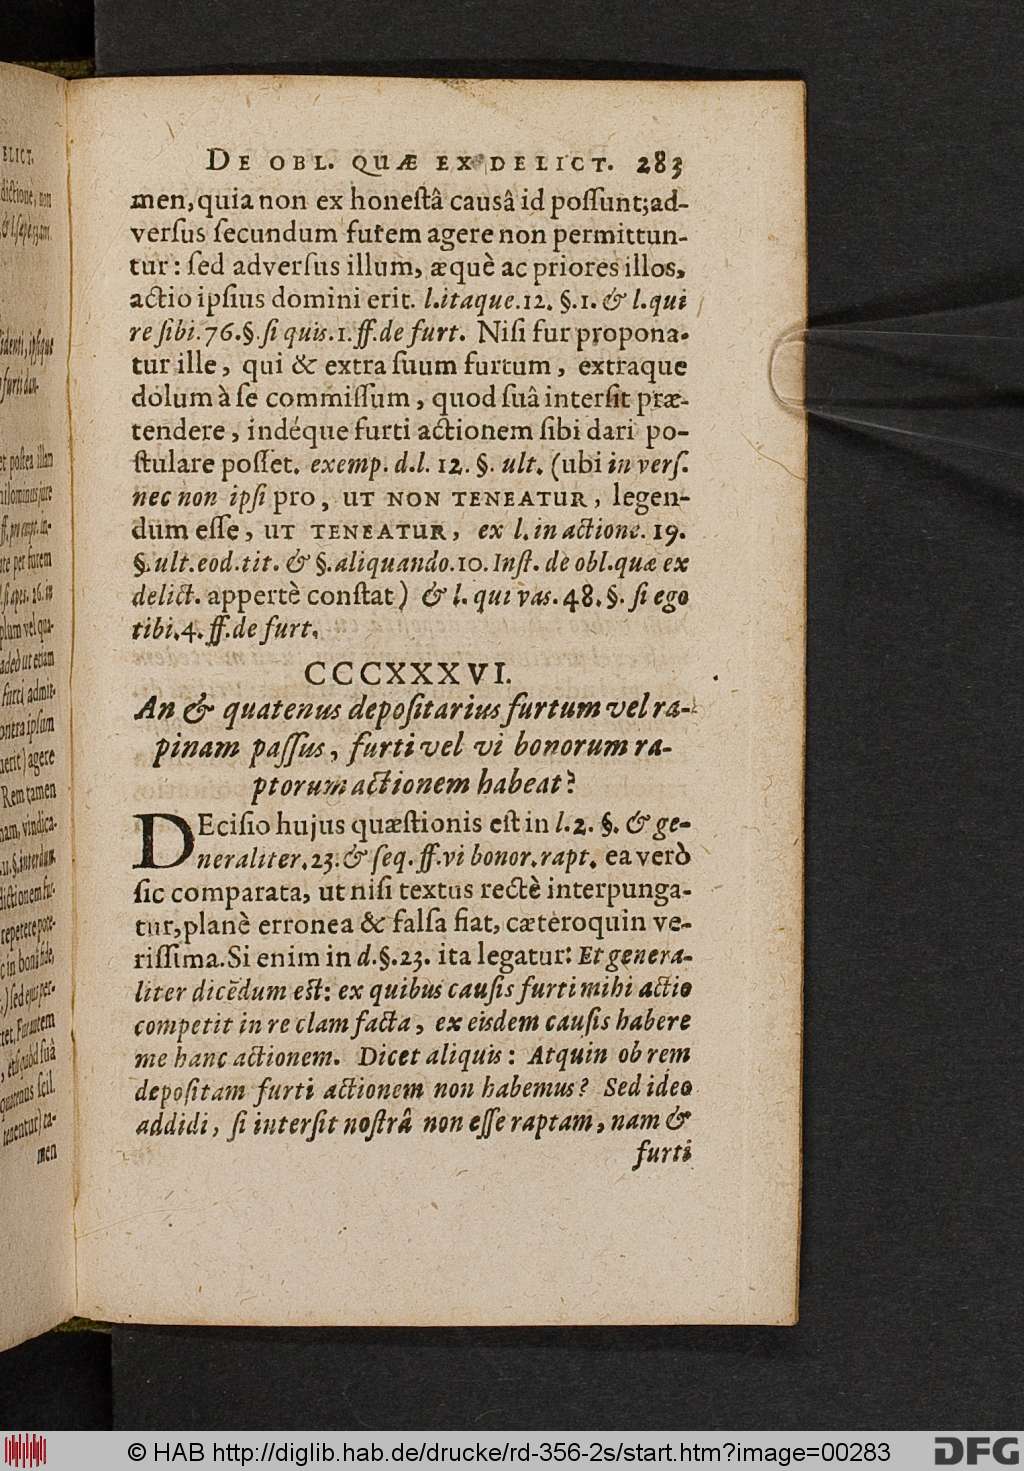 DE OBL. QUÆ EX DELICT. 283
men, quia non ex honeſtâ causâ id poſſunt; ad-
verſus ſecundum furem agere non permittun-
tur: ſed adverſus illum, æquè ac priores illos,
actio ipſius domini erit. l. itaque. 12. §. 1. & l. qui
re ſibi. 76. §. ſi quis. 1. ff. de furt. Niſi fur propona-
tur ille, qui & extra ſuum furtum, extraque
dolum à ſe commiſſum, quod ſuâ interſit præ-
tendere, indéque furti actionem ſibi dari po-
ſtulare poſſet. exemp. d. l. 12. §. ult. (ubi in verſ.
nec non ipſi pro, UT NON TENEATUR, legen-
dum eſſe, UT TENEATUR, ex l. in actione. 19.
§. ult. eod. tit. & §. aliquando. 10. Inſt. de obl. quæ ex
delict. appertè conſtat) & l. qui vas. 48. §. ſi ego
tibi. 4. ff. de furt.
CCCXXXVI.
An & quatenus depoſitarius furtum vel ra-
pinam paſſus, furti vel vi bonorum ra-
ptorum actionem habeat?
DEciſio hujus quæſtionis eſt in l. 2. §. & ge-
neraliter. 23. & ſeq. ff. vi bonor. rapt. ea verò
ſic comparata, ut niſi textus rectè interpunga-
tur, planè erronea & falſa fiat, cæteroquin ve-
riſſima. Si enim in d. §. 23. ita legatur: Et genera-
liter dicēdum eſt: ex quibus cauſis furti mihi actio
competit in re clam facta, ex eiſdem cauſis habere
me hanc actionem. Dicet aliquis: Atquin ob rem
depoſitam furti actionem non habemus? Sed ideo
addidi, ſi interſit noſtrâ non eſſe raptam, nam &
furti
© HAB http://diglib.hab.de/drucke/rd-356-2s/start.htm?image=00283
DFG